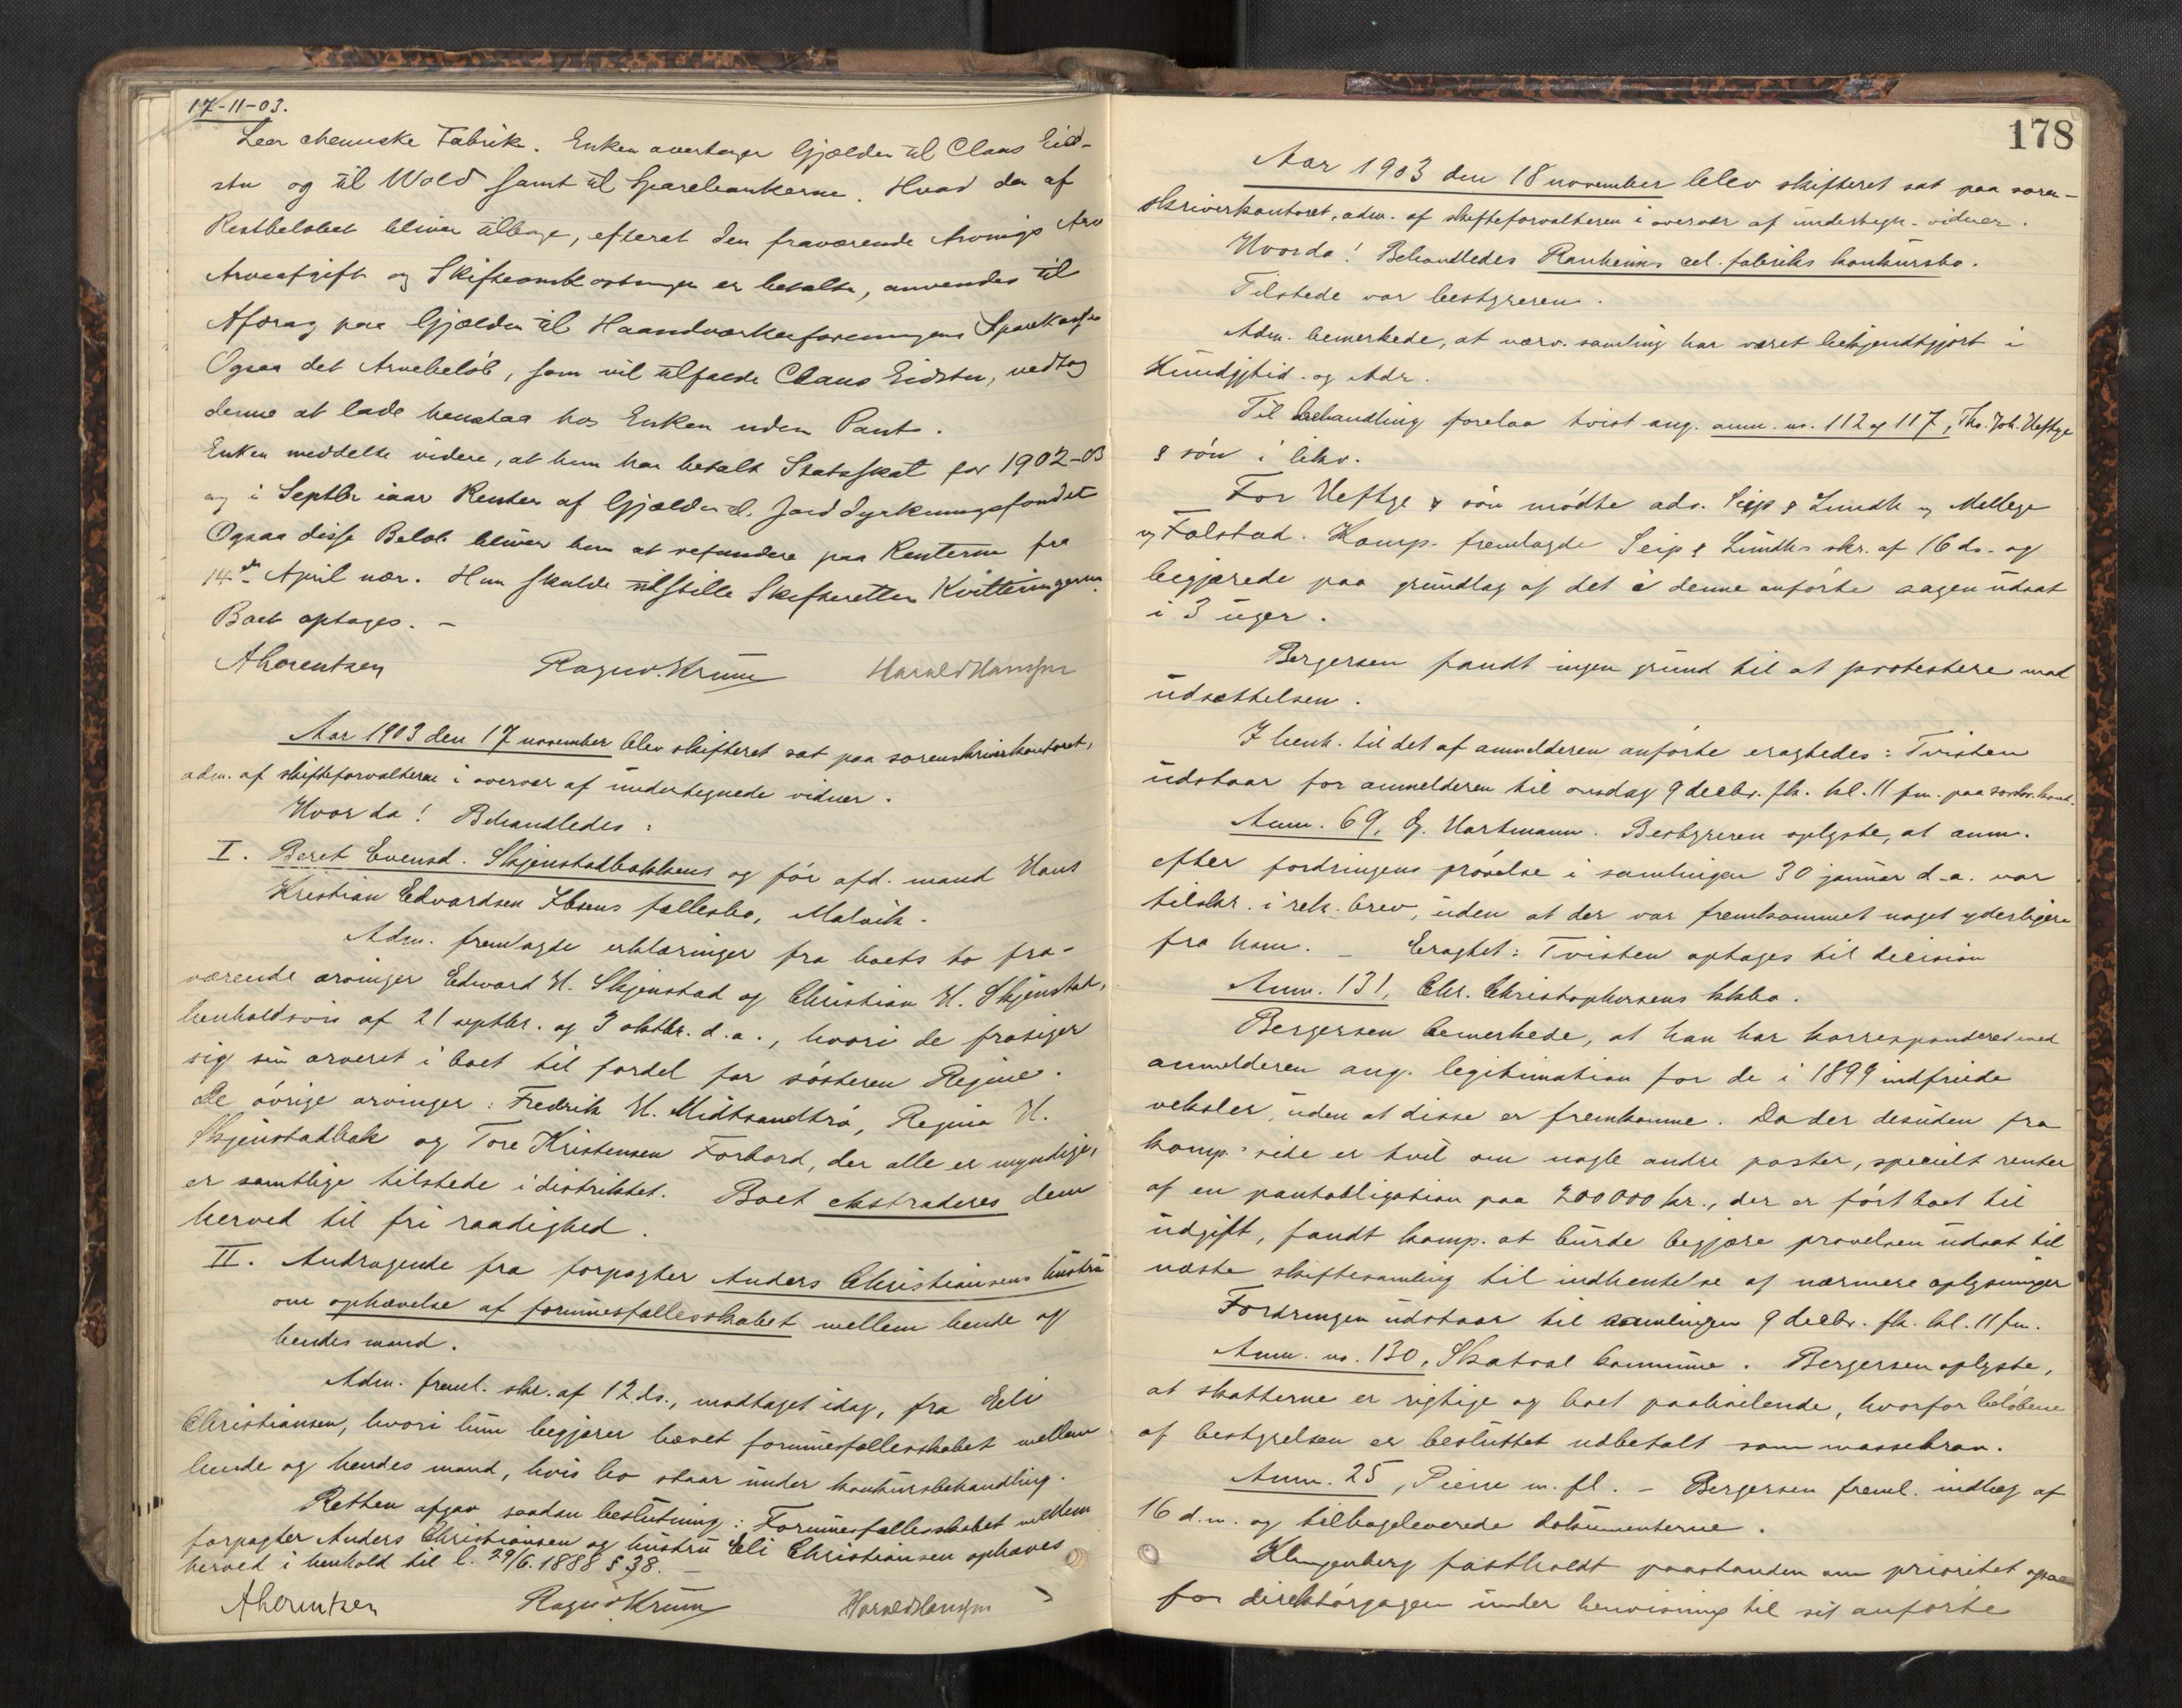 17-11-03.
Leer chemiske Fabrik. Enken overtager Gjælden til Claus Eid-
stu og til Wold samt til Sparebankerne. Hvad der af
Restbeløbet bliver tilbage, efterat den fraværende Arvings Arv
Arveafgift og Skifteomkostninger er betalte, anvendes til
Afdrag paa Gjælden til Haandværkerforeningens Sparekasse
Ogsaa det Arvebeløb, som vil tilfalde Claus Eidstu, vedtog
denne at lade henstaa hos Enken uden Pant.
Enken meddelte videre, at hun har betalt Statsskat for 1902-03
og i Septbr iaar Renter af Gjælden til Jorddyrkningsfondet
Ogsaa disse Beløb bliver hun at refundere paa Renterne fra
14de April nær. Hun skulde tilstille Skifteretten Kvitteringerne.
Boet optages. -
ALorentzen Ragnv. Krum Harald Hanssen
Aar 1903 den 17 november blev skifteret sat paa sorenskriverkontoret,
adm. af skifteforvalteren i overvær af undertegnede vidner.
Hvorda! Behandledes:
I. Beret Evensd. Skjenstadbakkens og før afd. mand Hans
Kristian Edvardsen Ibsens fællesbo, Malvik.
Adm. fremlagde erklæringer fra boets to fra-
værende arvinger Edward H. Skjenstad og Christian H. Skjenstad,
henholdsvis af 21 septbr. og 3 oktbr. d.a., hvori de frasiger
sig sin arveret i boet til fordel for søsteren Regine.
De øvrige arvinger: Fredrik H. Midtsandtrø, Regina H.
Skjenstadbak og Tore Kristensen Forbord, der alle er myndige,
er samtlige tilstede i distriktet. Boet ekstraderes dem
herved til fri raadighed.
II. Andragende fra forpagter Anders Christiansens hustru
om ophævelse af formuesfællesskabet mellem hende og
hendes mand.
Adm. freml. skr. af 12 ds., modtaget idag, fra Eli
Christiansen, hvori hun begjærer hævet formuesfællesskabet mellem
hende og hendes mand, hvis bo staar under konkursbehandling.
Retten afgav saadan beslutning: Formuesfællesskabet mellem
forpagter Anders Christiansen og hustru Eli Christiansen ophæves
herved i henhold til l. 29/6.1888 § 38. -
ALorentzen Ragnv. Krum Harald Hanssen
178
Aar 1903 den 18 november blev skifteret sat paa soren-
skriverkontoret, adm. af skifteforvalteren i overvær af undertegn. vidner.
Hvorda! Behandledes Ranheims cel. fabriks konkursbo.
Tilstede var bestyreren.
Adm. bemerkede, at nærv. samling har været bekjendtgjort i
Kundgjtid. og Adr.
Til behandling forelaa tvist ang. anm. no. 112 og 117, Th. Joh. Heftye
& søn i likv.
For Heftye & søn mødte adv. Seip & Lundh og Mellbye
og Falstad. Komp. fremlagde Seip & Lundhs skr. af 16 ds. og
begjærede paa grundlag af det i denne anførte sagen udsat
i 3 uger.
Bergersen fandt ingen grund til at protestere mod
udsættelsen.
I henh. til det af anmelderen anførte eragtedes: Tvisten
udstaar for anmelderen til onsdag 9 decbr. fk. kl. 11 fm. paa sorskr. kont.
Anm. 69, G. Hartmann. Bestyreren oplyste, at anm.
efter fordringens prøvelse i samlingen 30 januar d.a. var
tilskr. i rek. brev, uden at der var fremkommet noget yderligere
fra ham. - Eragtet: Tvisten optages til decision
Anm. 131, Chr. Christophersens kkbo.
Bergersen bemerkede, at han har korresponderet med
anmelderen ang. legitimation for de i 1899 indfriede
veksler, uden at disse er fremkomne. Da der desuden fra
komp.s side er tvil om nogle andre poster, specielt renter
af en pantobligation paa 200000 kr., der er ført boet til
udgift, fandt komp. at burde begjære prøvelsen udsat til
næste skiftesamling til indhentelse af nærmere oplysninger
Fordringen udstaar til samlingen 9 decbr. fk. kl. 11 fm.
Anm. no. 130, Skatval kommune. Bergersen oplyste,
at skatterne er rigtige og boet paahvilende, hvorfor beløbene
af bestyrelsen er besluttet udbetalt som massekrav.
Anm. 25, Piene m. fl. - Bergersen freml. indlæg af
16 d.m. og tilbageleverede dokumenterne.
Klingenberg fastholdt paastanden om prioritet ogsaa
for direktørgagen under henvisning til sit anførte